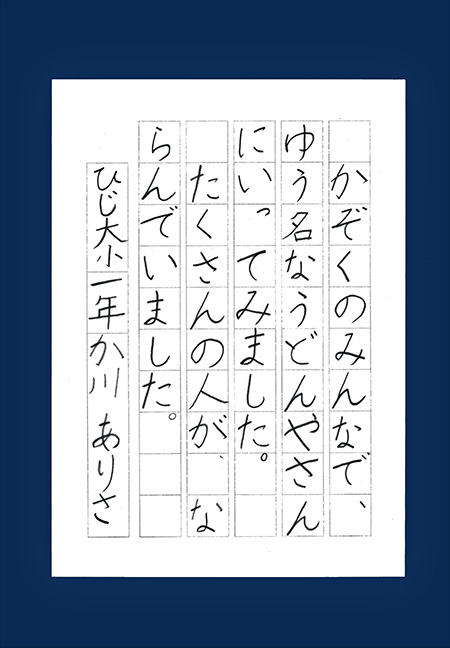 かぞくのみんなで、
ゆう名なうどんやさん
にいってみました。
たくさんの人が、な
らんでいました。
ひじ大小一年か川 ありさ